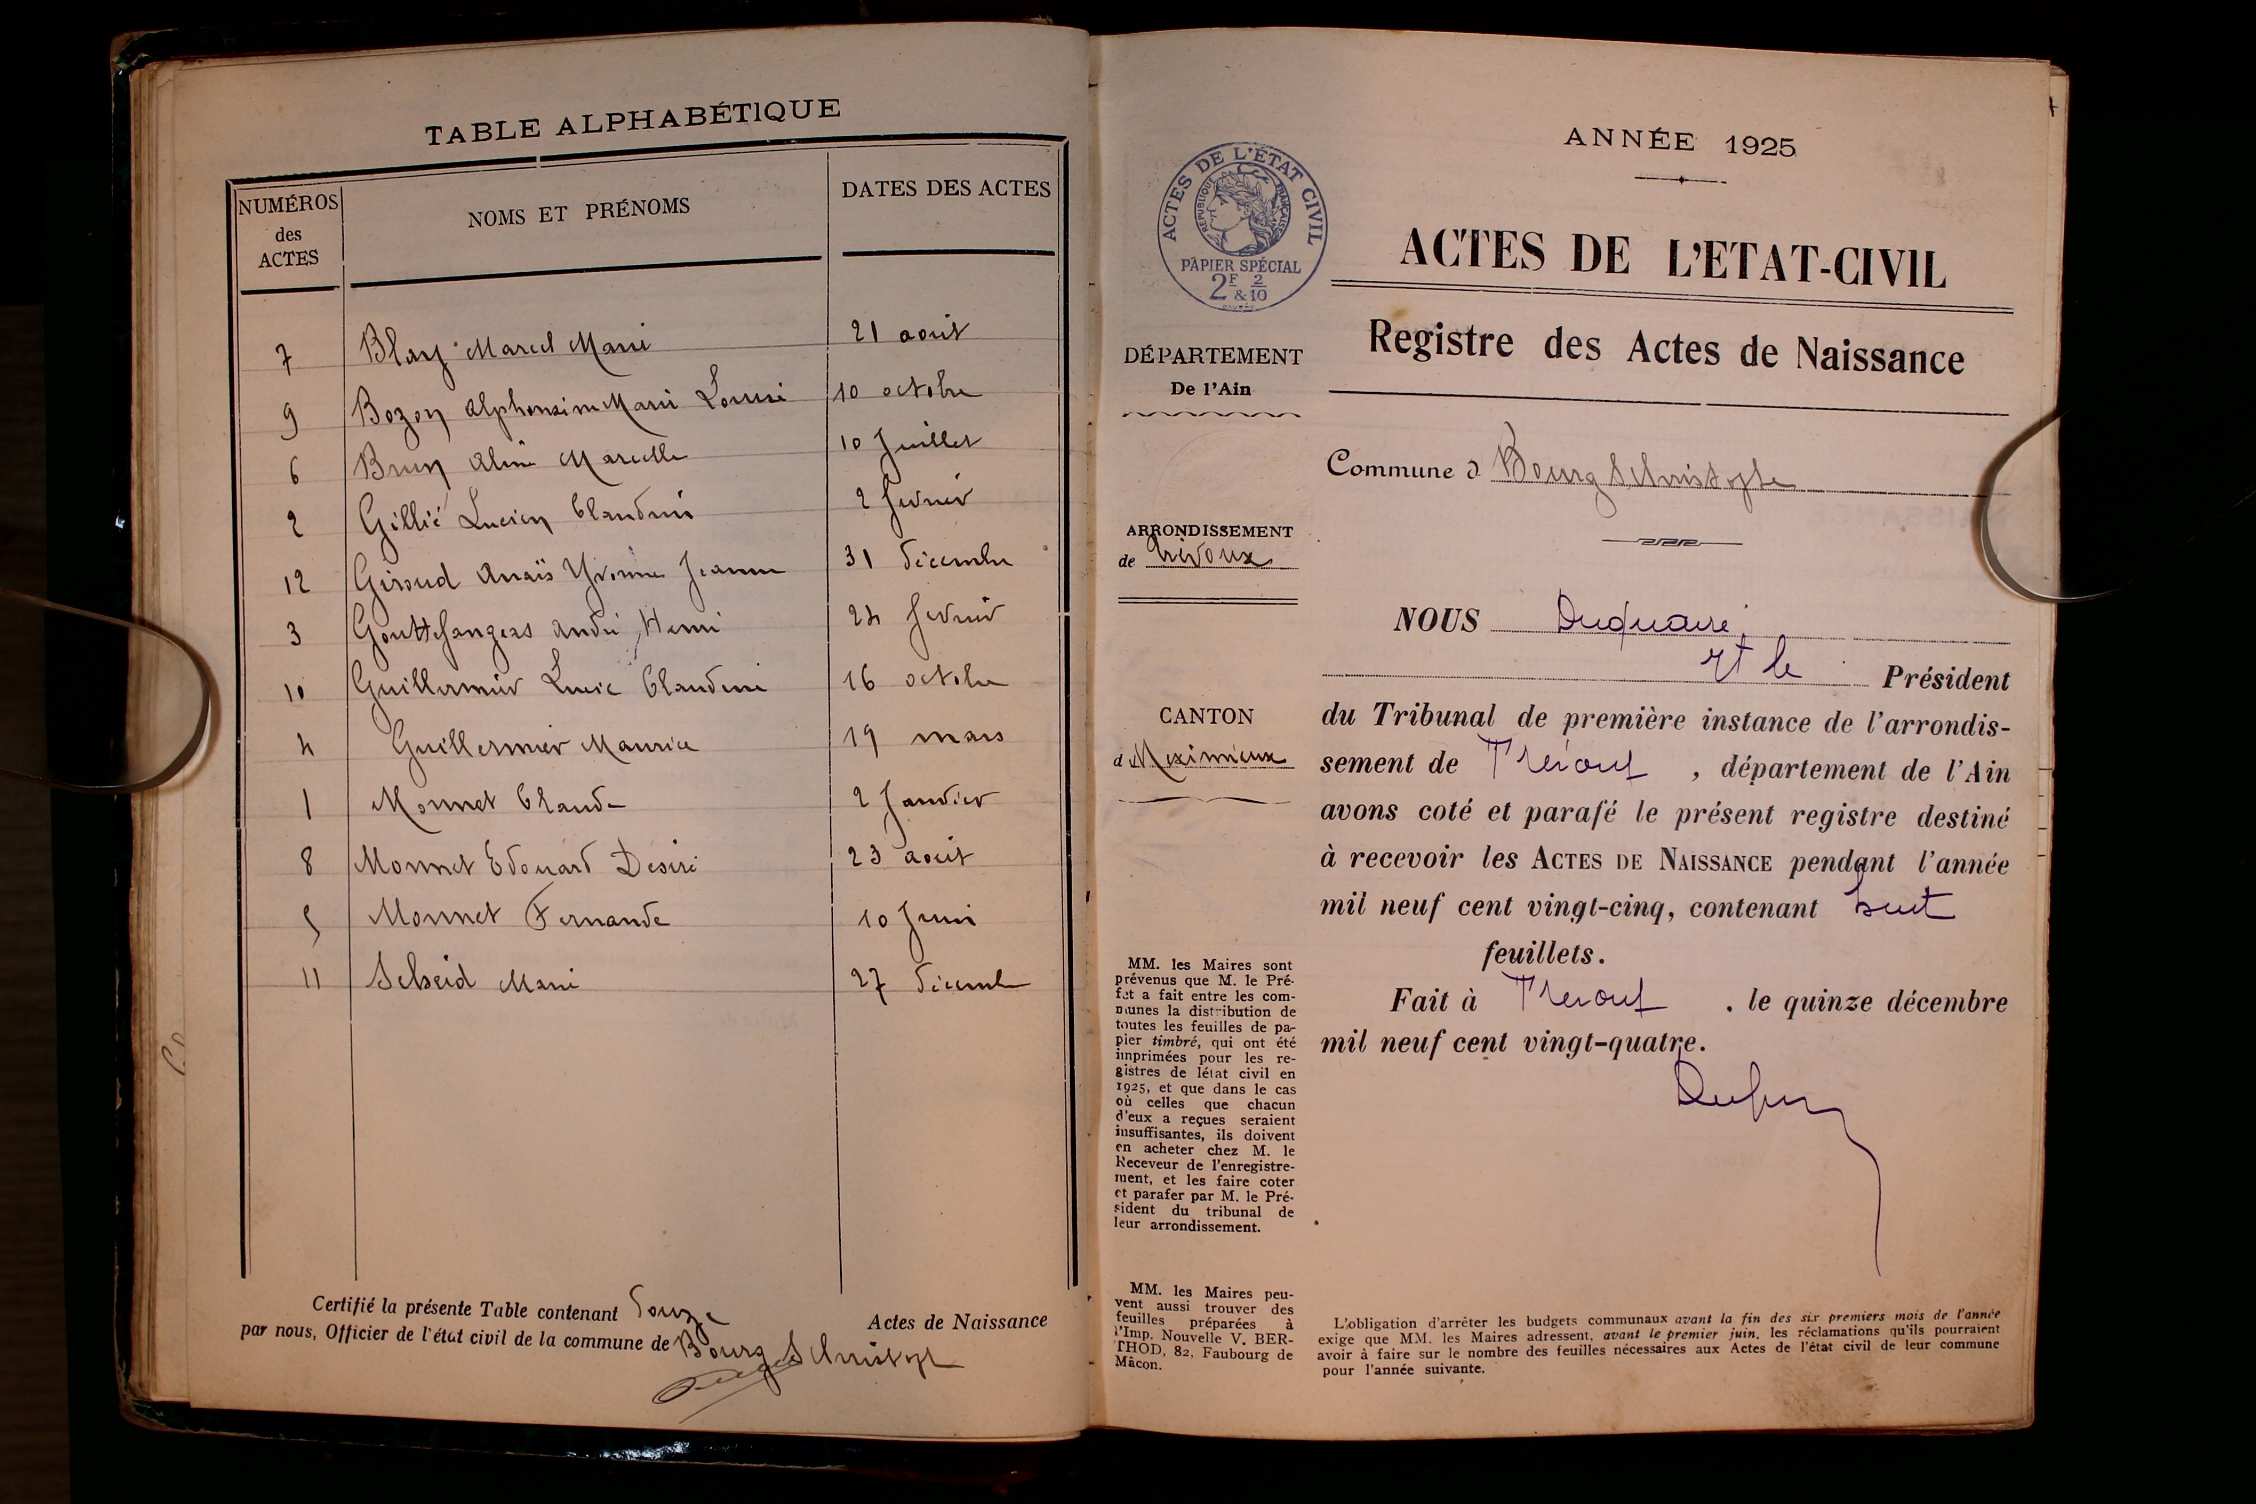 TABLE ALPHABÉTIQUE
NUMÉROS des ACTES
NOMS ET PRÉNOMS
DATES DES ACTES
7 Blay Marcel Marie 21 août
9 Bozon Alphonsine Marie Louise 10 octobre
6 Brun Aline Marcelle 10 Juillet
2 Gillié Lucien Claudius 2 fevrier
12 Giroud Anaïs Yvonne Jeanne 31 décembre
3 Gouttefangeas André Henri 24 fevrier
10 Guillermier Lucie Claudine 16 octobre
4 Guillermier Maurice 19 mars
1 Monnet Claude 2 Janvier
8 Monnet Edouard Désiré 23 août
5 Monnet Fernande 10 Juin
11 Scheid Marie 27 décembre
Certifié la présente Table contenant douze Actes de Naissance
par nous, Officier de l'état civil de la commune de Bourg St Christophe
ANNÉE 1925
ACTES DE L'ÉTAT CIVIL
RÉPUBLIQUE FRANÇAISE
PAPIER SPÉCIAL
2F & 2/10
ACTES DE L'ETAT-CIVIL
Registre des Actes de Naissance
DÉPARTEMENT
De l'Ain
Commune d Bourg St Christophe
ARRONDISSEMENT
de Trévoux
CANTON
d Meximieux
NOUS
et le Président
du Tribunal de première instance de l'arrondis-
sement de Trévoux, département de l'Ain
avons coté et parafé le présent registre destiné
à recevoir les ACTES DE NAISSANCE pendant l'année
mil neuf cent vingt-cinq, contenant huit
feuillets.
Fait à Trévoux, le quinze décembre
mil neuf cent vingt-quatre.
MM. les Maires sont
prévenus que M. le Pré-
fet a fait entre les com-
munes la distribution de
toutes les feuilles de pa-
pier timbré, qui ont été
imprimées pour les re-
gistres de létat civil en
1925, et que dans le cas
où celles que chacun
d'eux a reçues seraient
insuffisantes, ils doivent
en acheter chez M. le
Receveur de l'enregistre-
ment, et les faire coter
et parafer par M. le Pré-
sident du tribunal de
leur arrondissement.
MM. les Maires peu-
vent aussi trouver des
feuilles préparées à
l'Imp. Nouvelle V. BER-
THOD, 82, Faubourg de
Mâcon.
L'obligation d'arrêter les budgets communaux avant la fin des six premiers mois de l'année
exige que MM. les Maires adressent, avant le premier juin, les réclamations qu'ils pourraient
avoir à faire sur le nombre des feuilles nécessaires aux Actes de l'état civil de leur commune
pour l'année suivante.